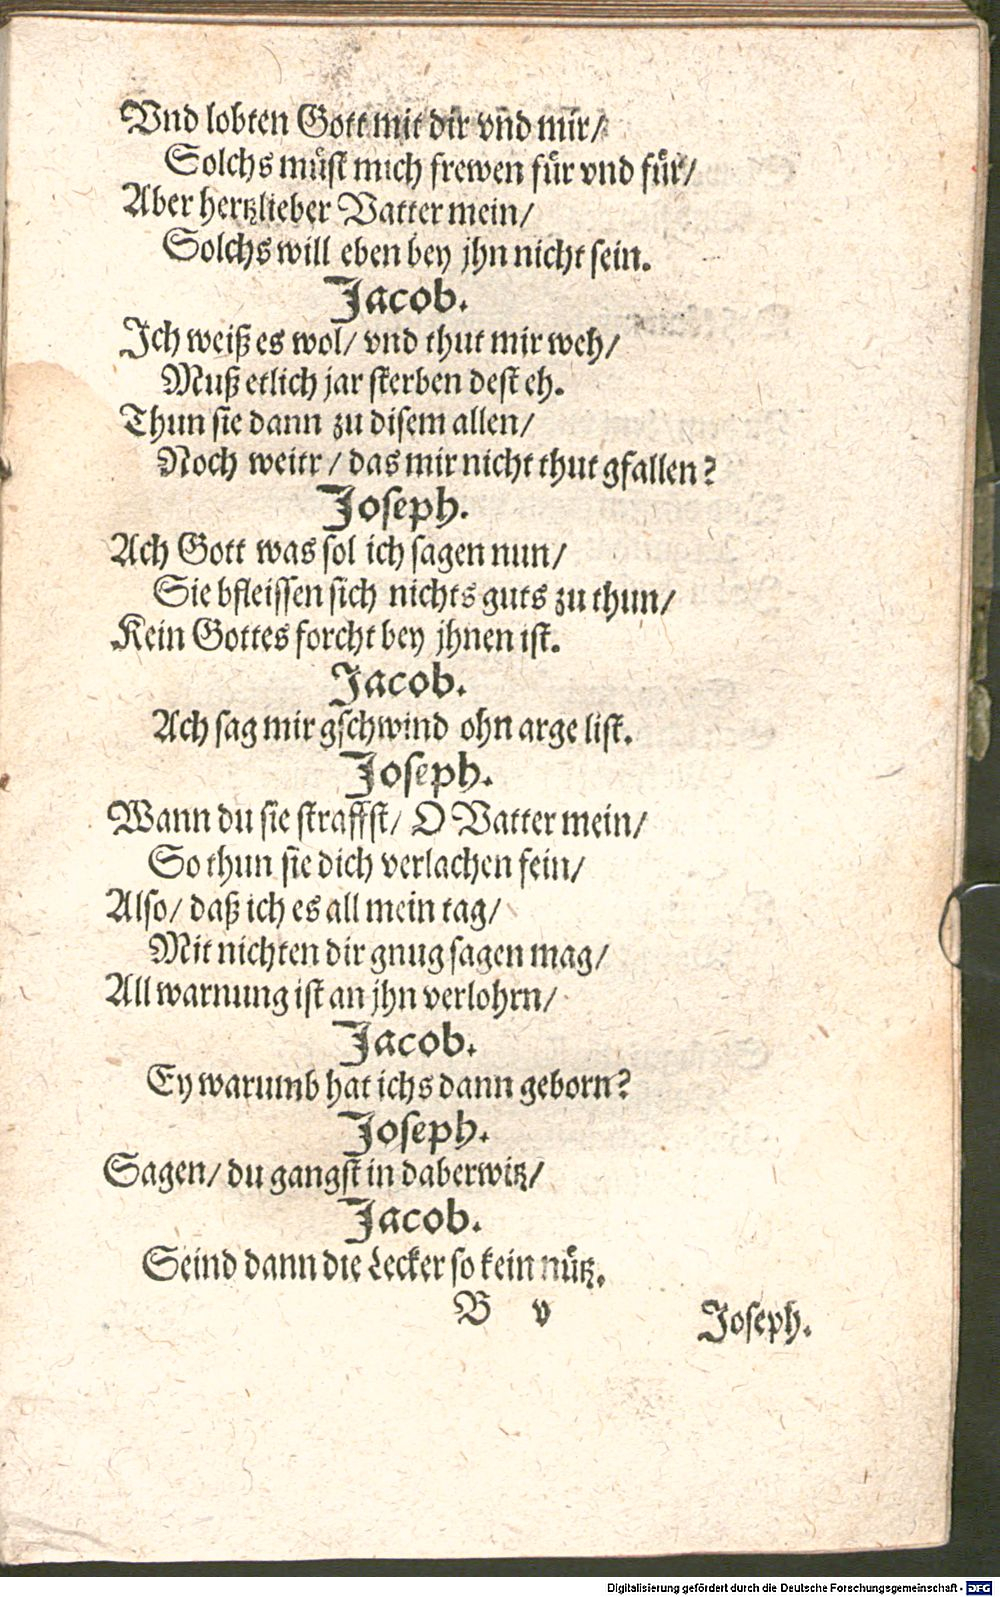 Vnd lobten Gott mit dir vnd mir/
Solchs muͤst mich frewen fuͤr vnd fuͤr/
Aber hertzlieber Vatter mein/
Solchs will eben bey jhn nicht sein.
Jacob.
Ich weiß es wol/ vnd thut mir weh/
Muß etlich jar sterben dest eh.
Thun sie dann zu disem allen/
Noch weitr/ das mir nicht thut gfallen?
Joseph.
Ach Gott was sol ich sagen nun/
Sie bfleissen sich nichts guts zu thun/
Kein Gottes forcht bey jhnen ist.
Jacob.
Ach sag mir gschwind ohn arge list.
Joseph.
Wann du sie straffst/ O Vatter mein/
So thun sie dich verlachen fein/
Also/ daß ich es all mein tag/
Mit nichten dir gnug sagen mag/
All warnung ist an jhn verlohrn/
Jacob.
Ey warumb hat ichs dann geborn?
Joseph.
Sagen/ du gangst in daberwitz/
Jacob.
Seind dann die Lecker so kein nuͤtz.
B v
Joseph.
Digitalisierung gefördert durch die Deutsche Forschungsgemeinschaft - DFG